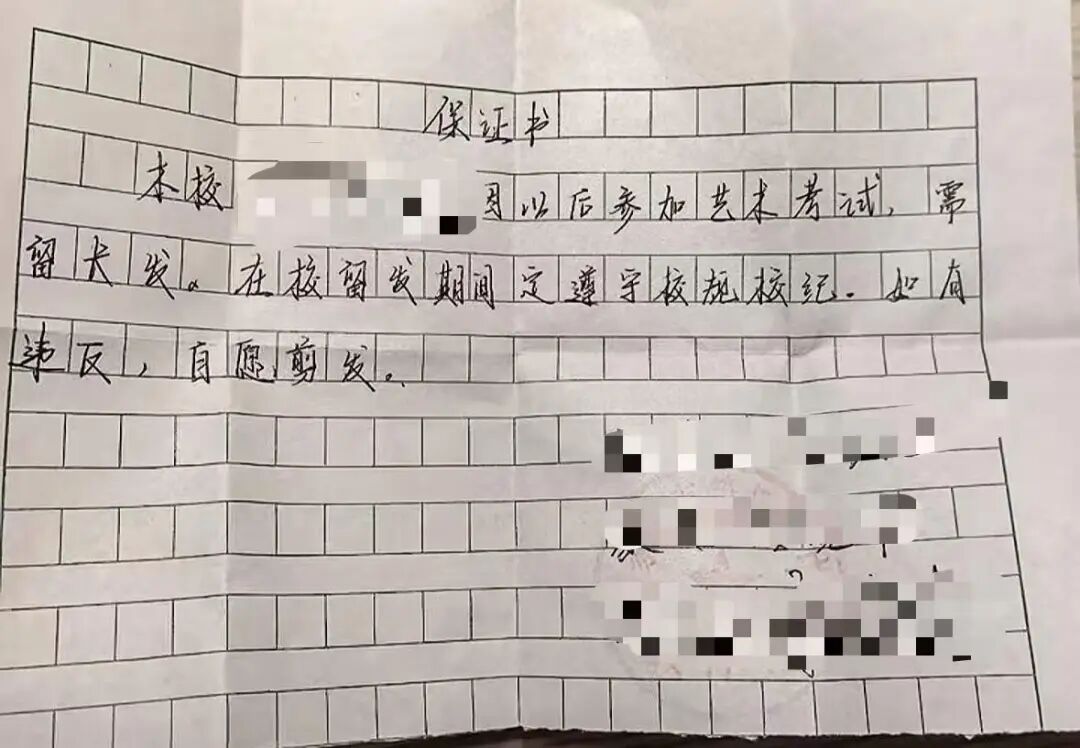 保证书
本校 因以后参加艺术考试，需
留长发。在校留发期间定遵守校规校纪．如有
违反，自愿剪发。